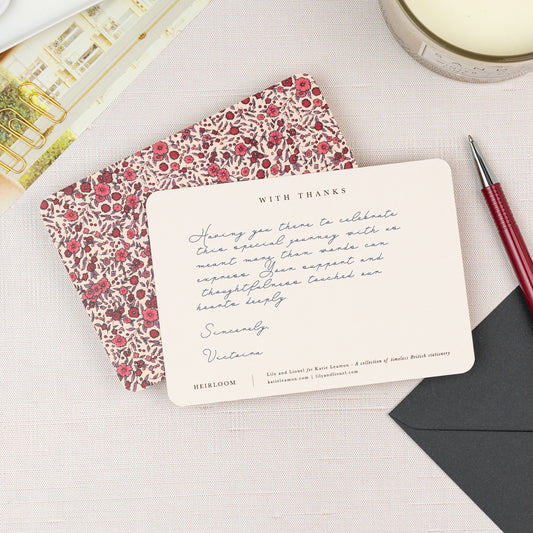 WITH THANKS
Having you there to celebrate
this special journey with us
meant more than words can
express. Your support and
thoughtfulness touched our
hearts deeply
Sincerely,
Victoria
HEIRLOOM
Lily and Lionel for Katie Leamon - A collection of timeless British stationery
katieleamon.com | lilyandlionel.com